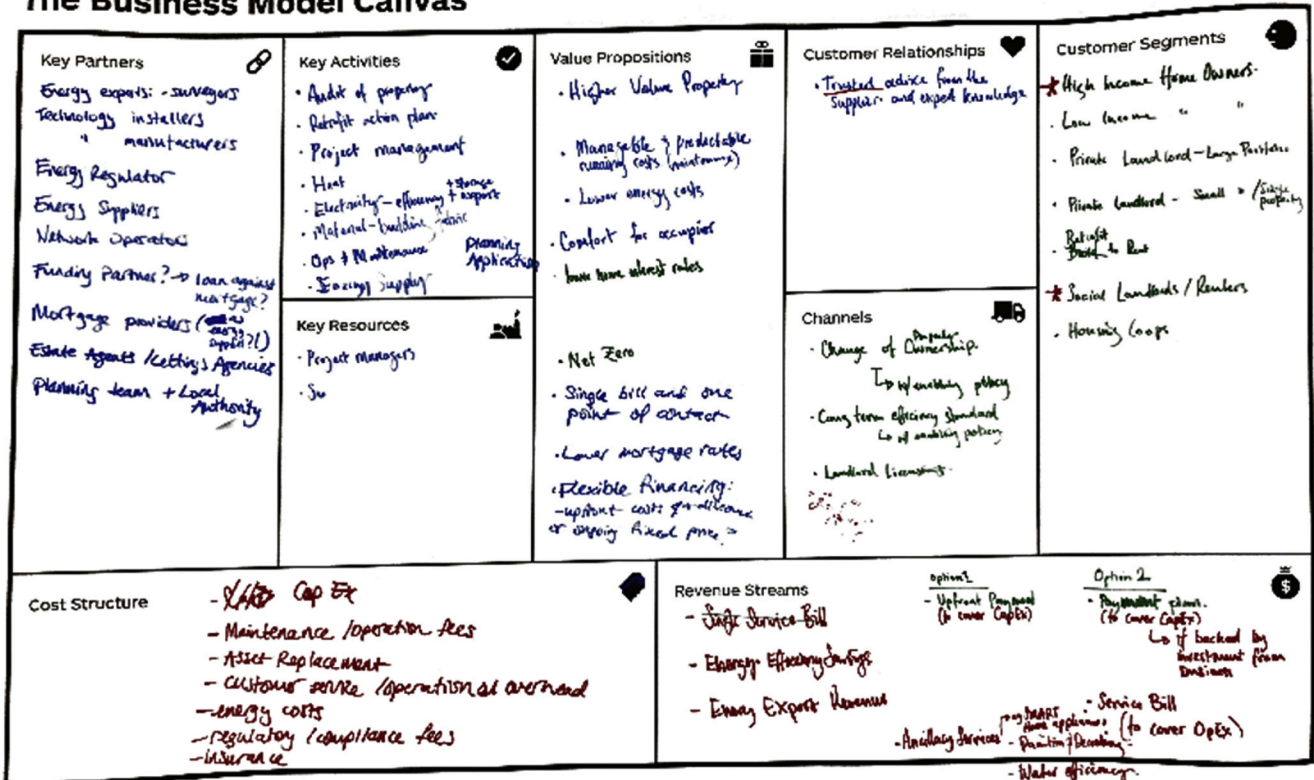 The Business Model Canvas
Key Partners
Energy experts: - surveyors
Technology installers
" manufacturers
Energy Regulator
Energy Suppliers
Network Operators
Funding Partner? → loan against
mortgage?
Mortgage providers (
Estate Agents / Lettings Agencies
Planning team + Local
Authority
Key Activities
• Audit of property
• Retrofit action plan
• Project management
• Heat
+ storage
• Electricity - efficiency + export
• Material - building fabric
• Ops + Maintenance
Planning
Application
• Energy supply
Key Resources
• Project managers
• Su
Value Propositions
• Higher Value Property
• Manageable & predictable
running costs (maintenance)
• Lower energy costs
• Comfort for occupier
interest rates
• Net Zero
• Single bill and one
point of contact
• Lower mortgage rates
• Flexible financing:
- upfront costs
or ongoing fixed price
Customer Relationships
• Trusted advice from the
supplier and expert knowledge
Channels
• Change of Property Ownership
↳ w/ enabling policy
• Long term efficiency standard
↳ w/ enabling policy
• Landlord licensing
Customer Segments
* High Income Home Owners
• Low Income " "
• Private Landlord - Large Portfolio
• Private Landlord - Small " / Single property
Retrofit
• Build to Rent
* Social Landlords / Renters
• Housing Coops
Cost Structure
- Cap Ex
- Maintenance / operation fees
- Asset Replacement
- customer service / operational overhead
- energy costs
- regulatory / compliance fees
- insurance
Revenue Streams
- Single Service Bill
- Energy Efficiency Savings
- Energy Export Revenue
option 1
- Upfront Payment
(to cover CapEx)
Option 2
- Payment plan.
(to cover CapEx)
↳ if backed by
investment from
business
- Service Bill
(to cover OpEx)
- Ancillary Services
SMART
Home appliances
- Painting / Decorating
- Water efficiency